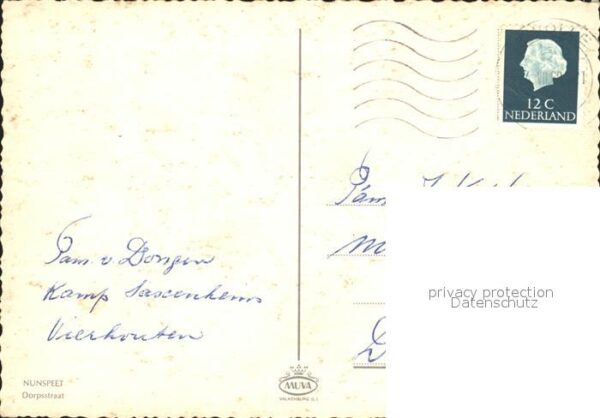 12 C
NEDERLAND
Fam.
Fam. v. Dongen
Kamp Saxenheim
Vierhouten
privacy protection
Datenschutz
NUNSPEET
Dorpsstraat
MUVA
VALKENBURG (L.)